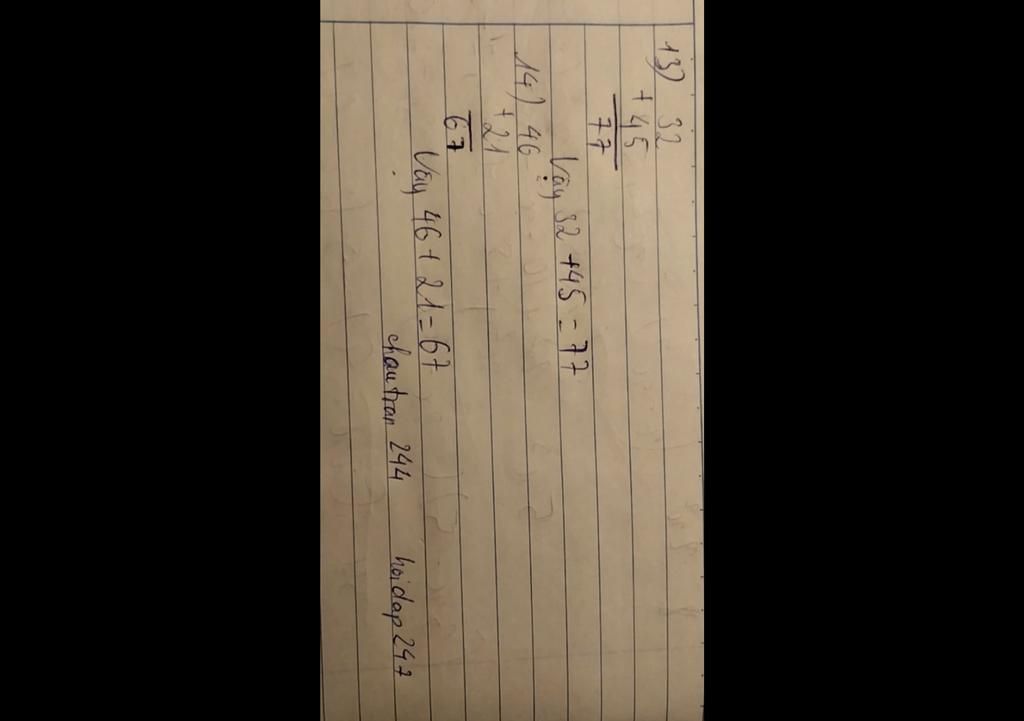 13) 32
+ 45
77
Vậy 32 + 45 = 77
14) 46
+ 21
67
Vây 46 + 21 = 67
chautran 244 hoidap247